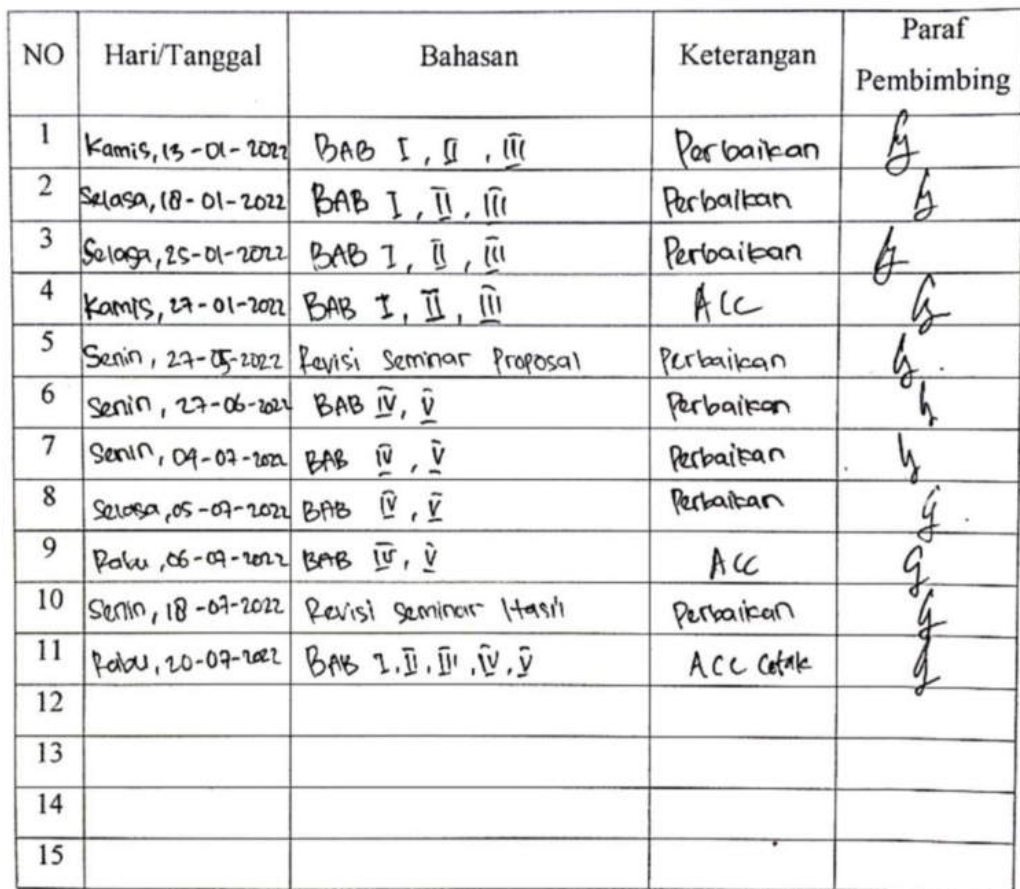 NO Hari/Tanggal Bahasan Keterangan Paraf Pembimbing
1 Kamis, 13-01-2022 BAB I, II, III Perbaikan
2 Selasa, 18-01-2022 BAB I, II, III Perbaikan
3 Selasa, 25-01-2022 BAB I, II, III Perbaikan
4 Kamis, 27-01-2022 BAB I, II, III ACC
5 Senin, 27-05-2022 Revisi Seminar Proposal Perbaikan
6 Senin, 27-06-2022 BAB IV, V Perbaikan
7 Senin, 04-07-2022 BAB IV, V Perbaikan
8 Selasa, 05-07-2022 BAB IV, V Perbaikan
9 Rabu, 06-07-2022 BAB IV, V ACC
10 Senin, 18-07-2022 Revisi Seminar Hasil Perbaikan
11 Rabu, 20-07-2022 BAB I, II, III, IV, V ACC Cetak
12
13
14
15